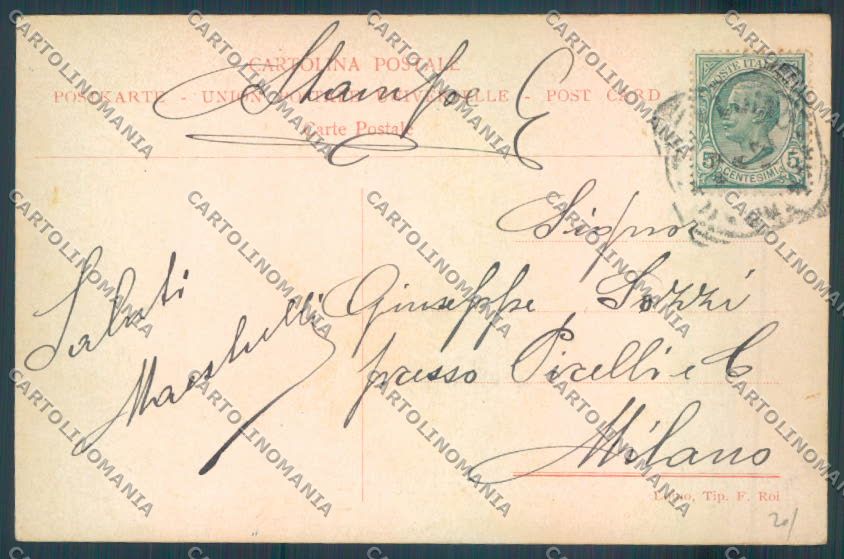 CARTOLINA POSTALE
POSTKARTE - UNION POSTALE UNIVERSELLE - POST CARD
Carte Postale
Stampe
POSTE ITALIANE
5 CENTESIMI 5
Signor
Giuseppe Sozzi
presso Pirelli e C
Milano
Saluti
Tip. F. Roi
20/
CARTOLINOMANIA